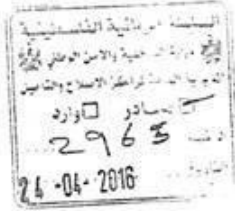 السلطة الوطنية الفلسطينية
وزارة الداخلية والأمن الوطني
المديرية العامة لمراكز الاصلاح والتأهيل
صادر وارد
2965
24 -04- 2016